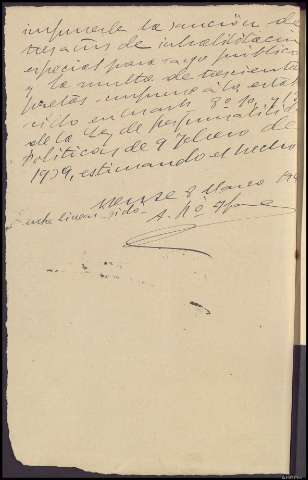 imponerle la sanción de
tres años de inhabilitación
especial para cargo público
y la multa de trescientas
pesetas conforme a lo esta
vido en 8º 10, y
de la Ley de responsabilid
Politicas de 9 Febrero de
1939, estimando el hecho
Orense 8 Marzo 194
Entre lineas - sido -
A.